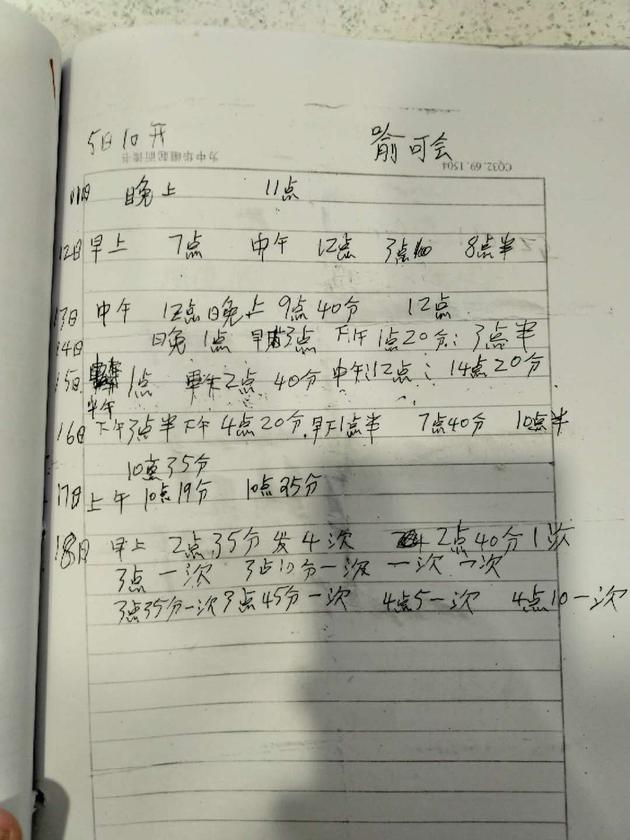 5日10开
喻可会
为中华崛起而读书
CQ32.69.1504
11日 晚上 11点
12日 早上 7点 中午 12点 3点 8点半
13日 中午 12点 晚上 9点40分 12点
14日 晚 1点 3点 下午 1点20分: 3点半
15日 1点 2点 40分 中午:12点: 14点20分
半午
16日 下午3点半 下午 4点20分. 早下1点半 7点40分 10点半
10点35分
17日 上午 10点19分 10点35分
18日 早上 2点35分 发4次 2点40分1次
3点 一次 3点10分一次 一次 一次
3点35分一次 3点45分一次 4点5一次 4点10一次